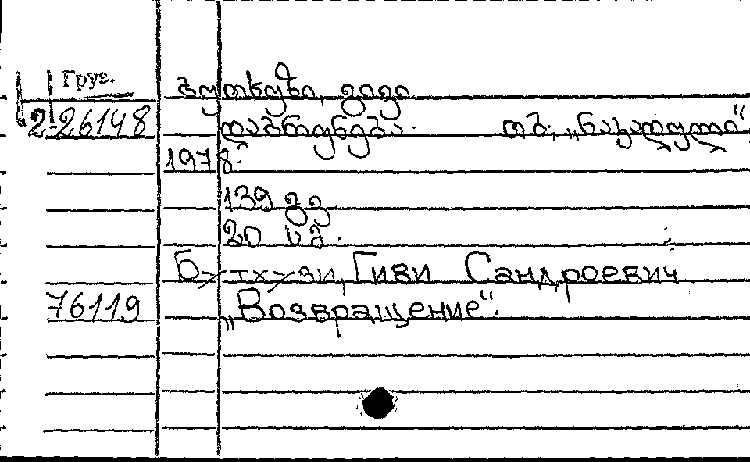 Груз.
ბუთხუზი, გივი
2-26148 დაბრუნება. თბ., „ნაკადული“
1978.
139 გვ
20 კპ.
Бутхузи, Гиви Сандроевич
76119 „Возвращение“.